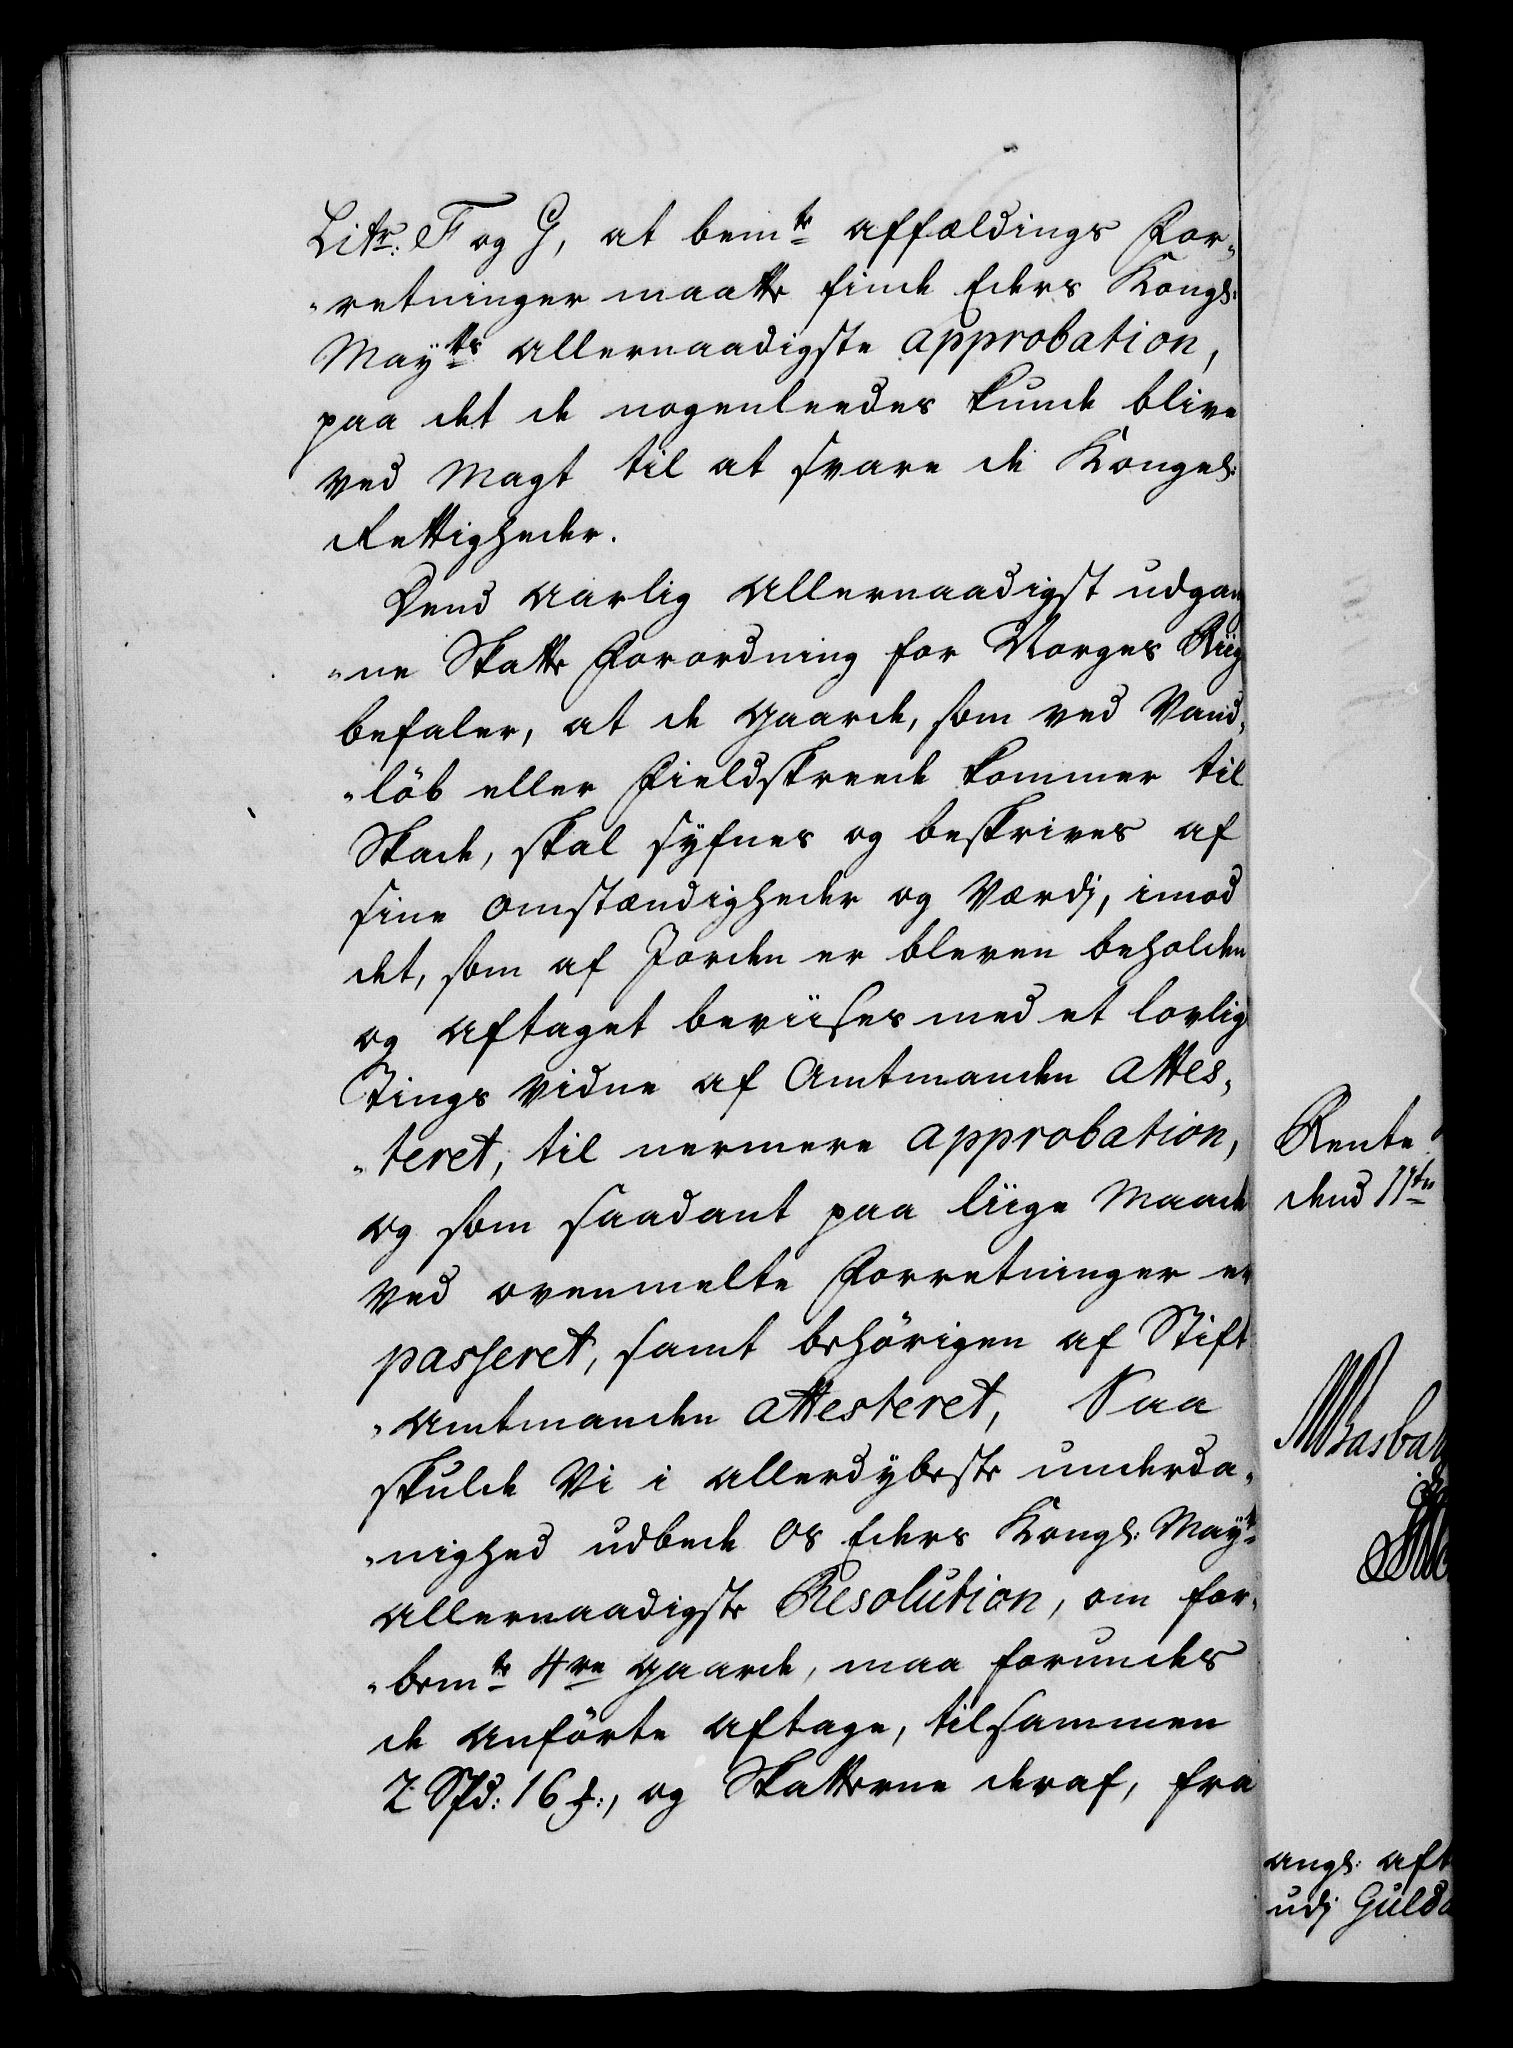 Litr: F og G, at bemte affældings For„
„retninger maatte finde Eders Kongl:
Mayts allernaadigste approbation,
paa det de nogenleedes kunde blive
ved Magt til at svare de Kongel:
Rettigheder.
Dend aarlig allernaadigst udgan
„ne Skatte Forordning for Norges Riig
befaler, at de gaarde, som ved Vand„
„löb eller Fieldskreede kommer til
Skade, skal syfnes og beskrives af
sine omstændigheder og Værdj, imod
det, som af Jorden er bleven beholden
og aftaget beviises med et lovlig
Tings vidne af Amtmanden attes„
„teret, til nermere approbation,
og som saadant paa liige Maade
ved ovenmelte Forretninger er
passeret, samt behörigen af Stift
„amtmanden attesteret, Saa
skulde Vi i allerdybeste underda„
„nighed udbede os Eders Kongl: Mayts
allernaadigste Resolution, om for„
„bemte 4re gaarde, maa forundes
de anförte aftage, tilsammen
2 Spd: 16 ß:, og Skatterne deraf, fra
Rente
dend 11te
angl: aft
udj Guld